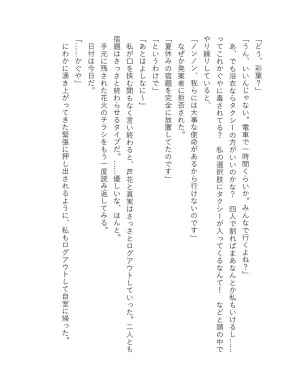 「どう、彩葉？」
「うん、いいんじゃない。電車で一時間くらいか。みんなで行くよね？」
あ、でも浴衣ならタクシーの方がいいのかな？　四人で割ればまあなんとか私もいけるし……
ってこれかぐやに毒されてる？　私の選択肢にタクシーが入ってくるなんて！　などと頭の中で
やり繰りしていると、
「ノンノン、我らには大事な使命があるから行けないのです」
なぜか発案者に拒否された。
「夏休みの宿題を完全に放置してたのです」
「というわけで」
「あとはよしなに〜」
私が口を挟む間もなく言い終わると、芦花と真実はさっさとログアウトしていった。二人とも
宿題はさっさと終わらせるタイプだ。……優しいな、ほんと。
手元に残された花火のチラシをもう一度読み返してみる。
日付は今日だ。
「……かぐや」
にわかに湧き上がってきた緊張に押し出されるように、私もログアウトして自室に帰った。